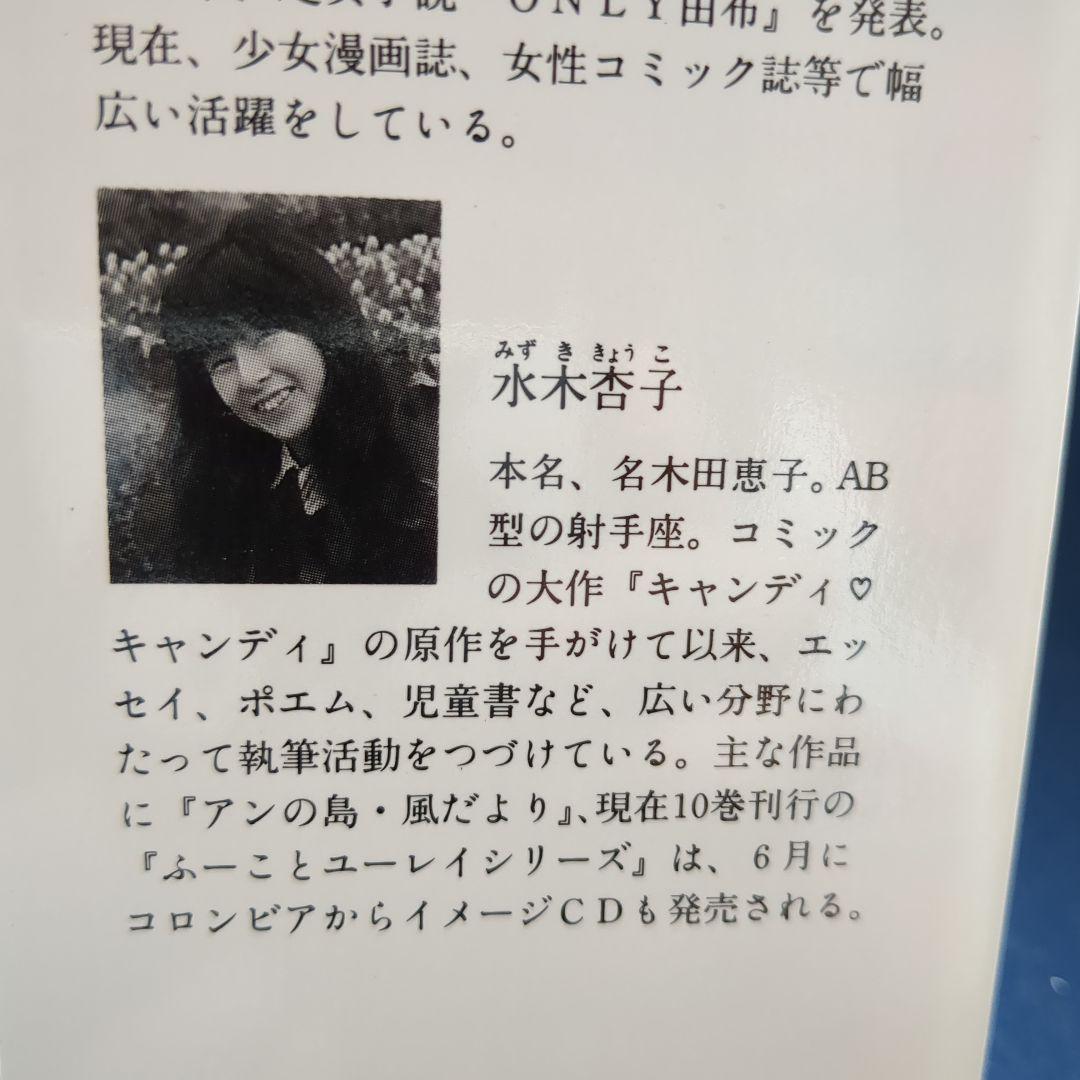 『ONLY田布』を発表。
現在、少女漫画誌、女性コミック誌等で幅
広い活躍をしている。
みずききょうこ
水木杏子
本名、名木田恵子。AB
型の射手座。コミック
の大作『キャンディ♡
キャンディ』の原作を手がけて以来、エッ
セイ、ポエム、児童書など、広い分野にわ
たって執筆活動をつづけている。主な作品
に『アンの島・風だより』、現在10巻刊行の
『ふーことユーレイシリーズ』は、6月に
コロンビアからイメージCDも発売される。